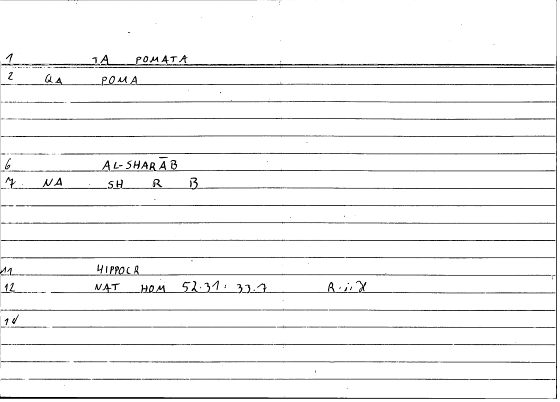 1 TA POMATA
2 QA POMA
6 AL-SHARĀB
7 NA SH R B
11 HIPPOCR
12 NAT HOM 52.31: 33.7
14